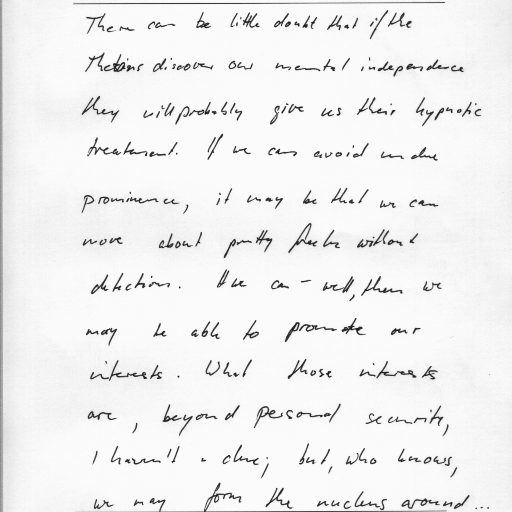 There can be little doubt that if the
Thetans discover our mental independence
they will probably give us their hypnotic
treatment. If we can avoid undue
prominence, it may be that we can
move about pretty freely without
detection. If we can - well, then we
may be able to promote our
interests. What those interests
are, beyond personal security,
I haven't a clue; but, who knows,
we may form the nucleus around...